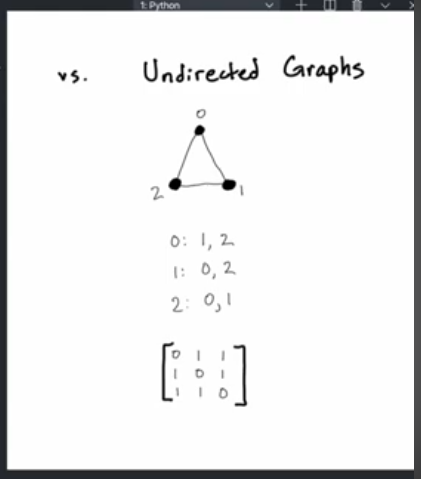 1: Python
vs. Undirected Graphs
0
2 1
0: 1, 2
1: 0, 2
2: 0, 1
0 1 1
1 0 1
1 1 0